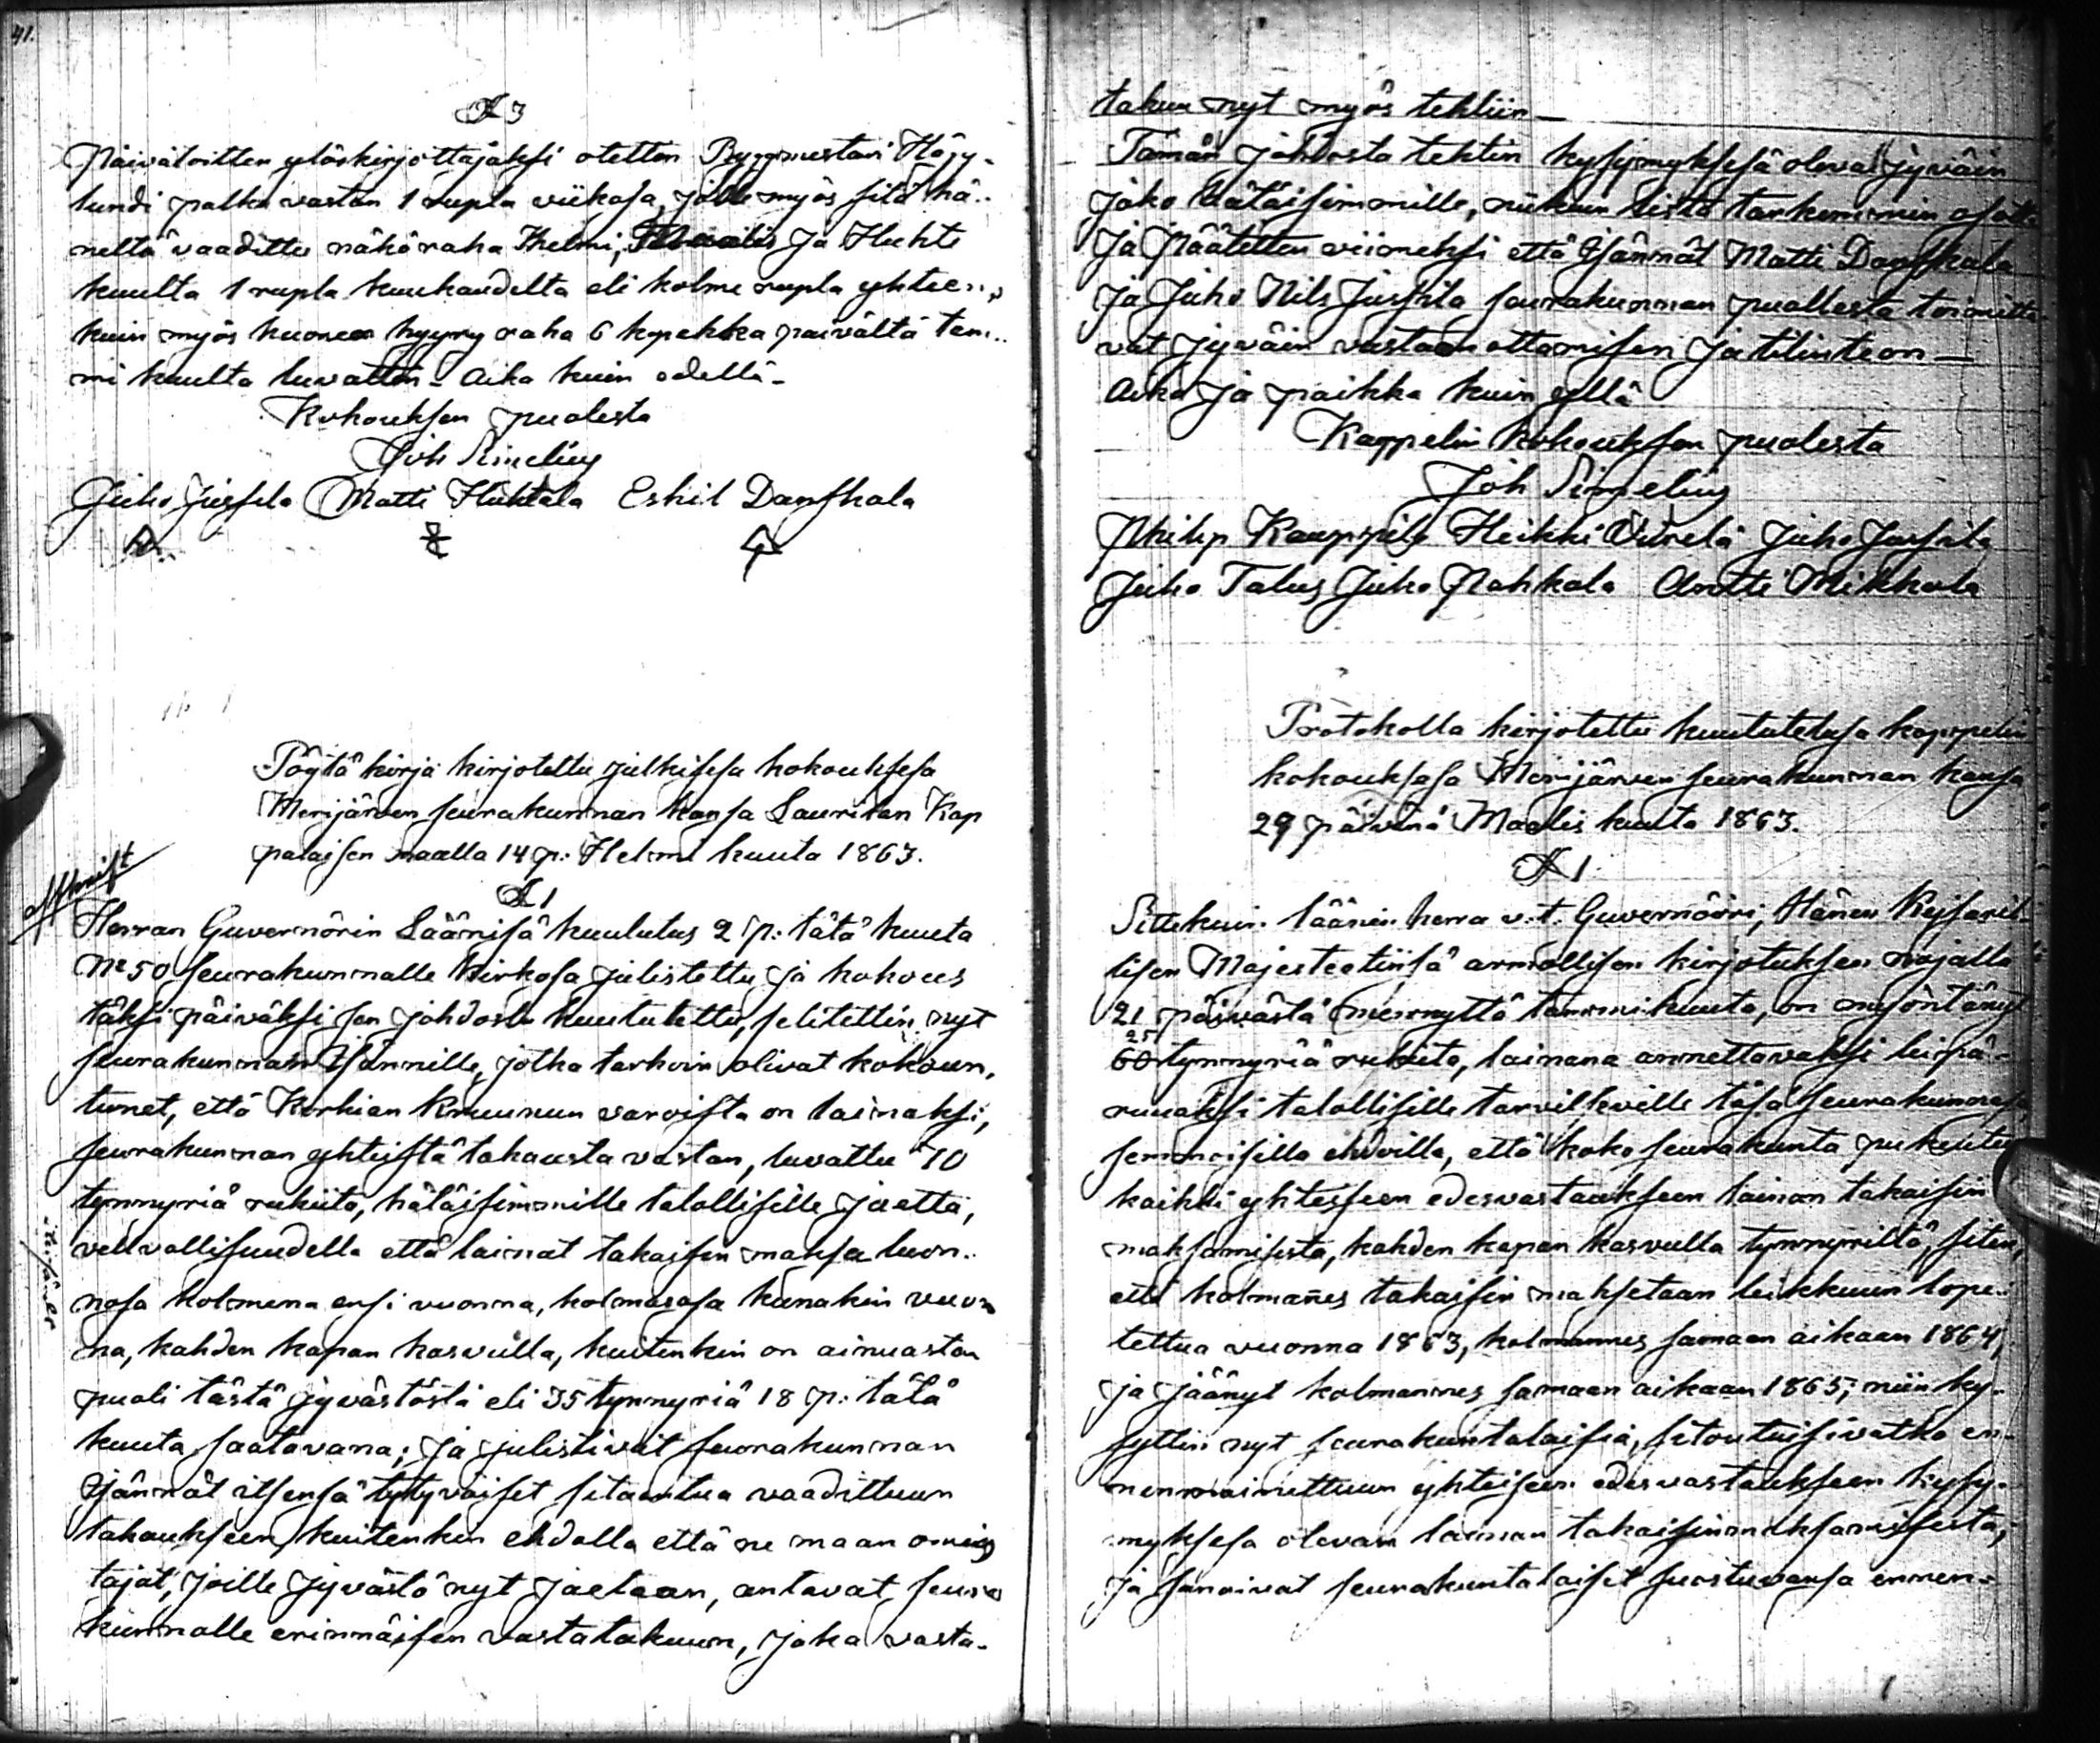 41.
§ 3
Päivätoitten ylöskirjottajaksi otetton Byggmestari Högg-
lundi palka vastan 1 rupla viikosa, jolle myös sitä hä-
neltä vaadittu näkö raha Helmi, ja Huhti
kuulta 1 rupla kuukaudelta eli kolme rupla yhteen,
kuin myös huoneen hyyry raha 6 kopekka päivältä tam-
mi kuulta luvattin - Aika kuin edellä -
Kokouksen puolesta
Joh Simelius
Juho Jussila Matti Huhtala Eskil Danskala
Pöytä kirja kirjotettu julkisesa kokouksesa
Merijärven seurakunnan kansa Laurilan Kap
palaisen maalla 14 p: Helmi kuuta 1863.
Afskrift
§ 1
Herran Guvernörin Läänisä kuulutus 2 p: tätä kuuta
No 50 seurakunnalle kirkosa julistettu ja kokous
täksi päiväksi sen johdosta kuulutettu, selitettin nyt
seurakunnan Isännille, jotka tarkoin olivat kokoun,
tunet, että Korkian Kruunun varoista on lainaksi,
seurakunnan yhteistä takausta vastan, luvattu 70
tynnyriä rukiita, hätäisimmille talollisille jaetta,
velvollisuudella että lainat takaisen maksa luon-
nosa kolmena ensi vuonna, kolmasosa kunakin vuon
na, kahden kapan kasvulla, kuitenkin on ainuastan
puoli tästä jyvästöstä eli 35 tynnyriä 18 p: tätä
kuuta saatavana; ja julistivat seurakunnan
Isännät itsensä tytyväiset sitauntua vaadittuun
takaukseen, kuitenkin ehdolla että ne maan omis
tajat, joille jyvästö nyt jaetaan, antavat seura
kunnalle erinnäisen vastatakuun, joka vasta-
takuu nyt myös tehtiin —
Tämän johdosta tehtin kysymyksesä olevan jyväin
jako hätäisimmille, niikuin lista tarkemmin osotta
ja Päätettin viimeksi että Isännät Matti Danskala
ja Juho Nils Jussila seurakunnan puollesta toimitta
vat jyväin vastaan ottamisen ja tilinteon —
Aika ja paikka kuin yllä
Kappelin kokouksen puolesta
Joh Simelius
Philip Kauppila Heikki Juho Jussila
Juho Talus Juho Pahkala Antti Mikkola
Protokolla kirjotettu kuulutetusa kappelin
kokouksesa Merijärven seurakunnan kansa
29 päivänä Maalis kuuta 1863.
§ 1
Sittekuin läänin herra v. t. Guvernööri, Hänen Keisaril-
lisen Majesteetiinsä armollisen kirjotuksen nojalla
21 päivästä mennyttä tammikuuta, on myöntänyt
25
60 tynnyriä rukiita, lainana annettavaksi leipä-
ruuaksi talollisille tarvitseville täsä seurakunnasa
semmoisilla ehdoilla, että koko seurakunta pukeutu
kaikki yhteiseen edesvastaukseen lainan takaisin
maksamisesta, kahden kapan kasvulla tynnyriltä, siten,
että kolmannes takaisin maksetaan leikkuun lope-
tettua vuonna 1863, kolmannes samaan aikaan 1864,
ja jäänyt kolmannes samaan aikaan 1865; niin ky-
syttin nyt seurakuntalaisia, sitoutuisivatko en-
nenmainittuun yhteiseen edesvastaukseen kysy-
myksesä olevan lainan takaisinmaksamisesta,
ja sanoivat seurakuntalaiset suostuvansa ennen-